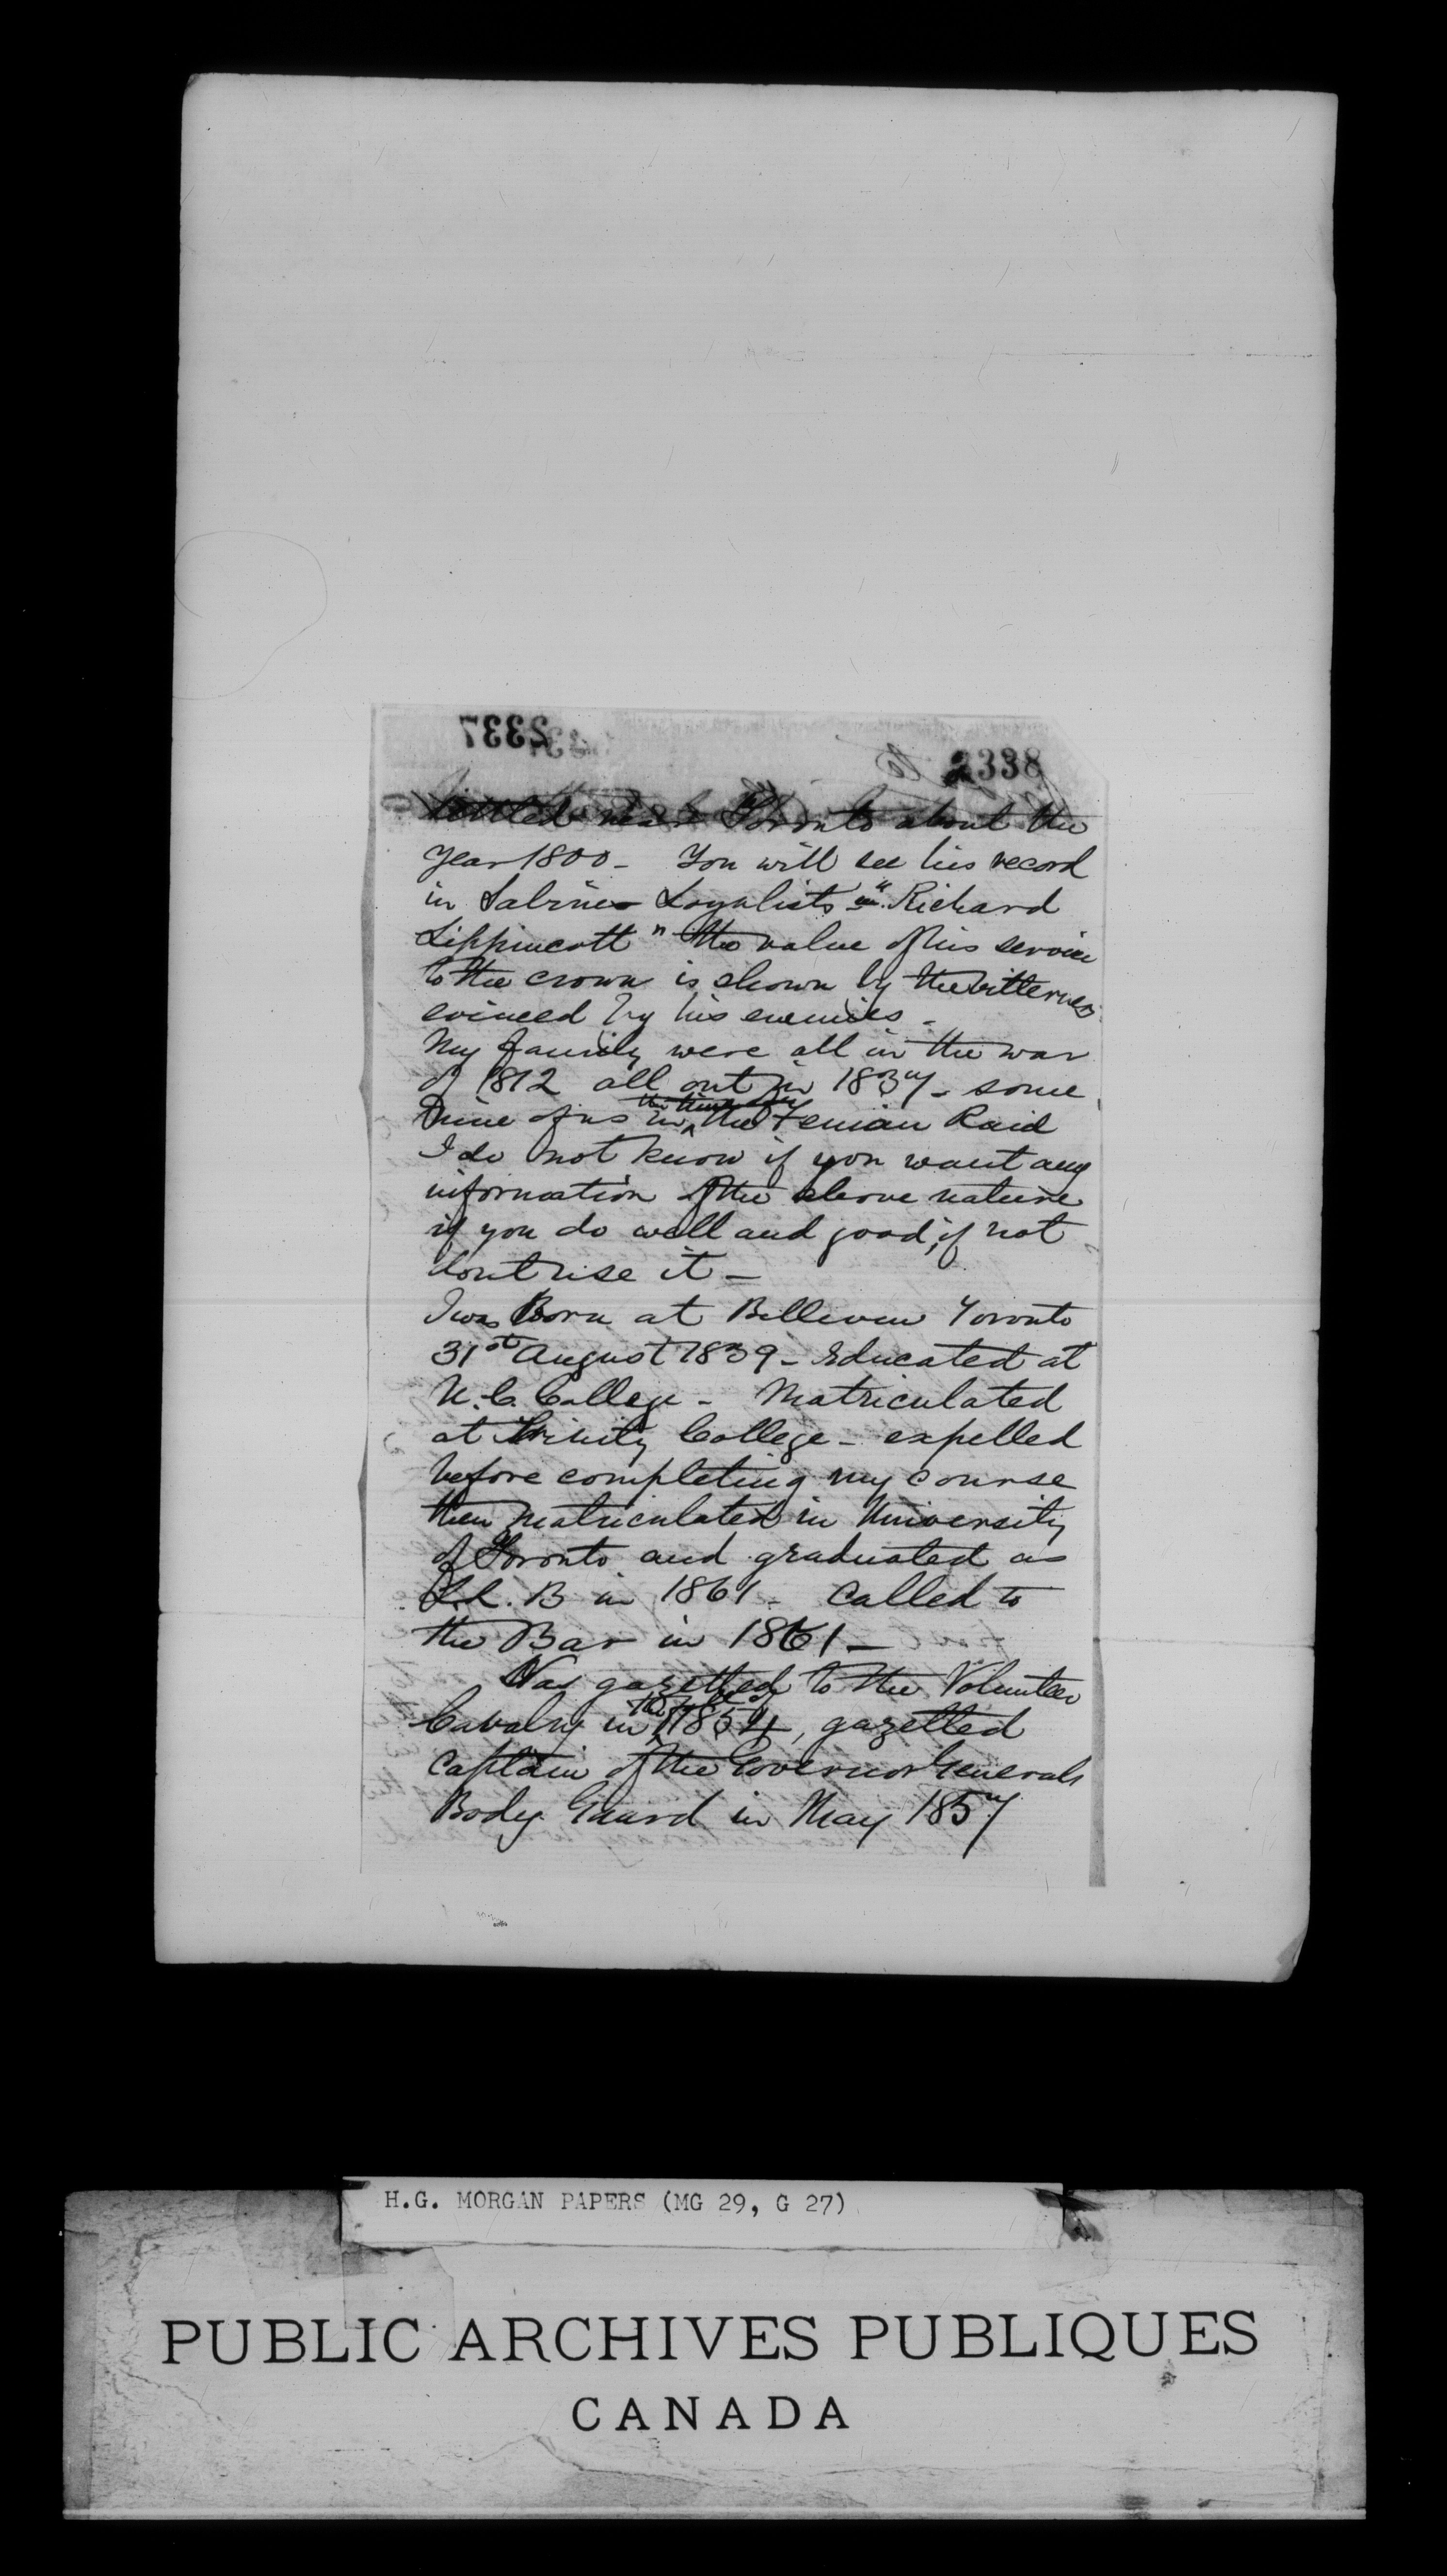 2337
2338
Settled near Toronto about the
year 1800 - You will see his record
in Sabines Loyalists in "Richard
Lippincott" the value of his service
to the crown is shown by the bitterness
evinced by his enemies -
My family were all in the war
of 1812 all out in 1837 - some
nine of us in the Fenian Raid
I do not know if you want any
information of the above nature
if you do well and good, if not
dont use it -
I was Born at Bellevue Toronto
31st August 1839 - Educated at
U. C. College - Matriculated
at Trinity College - expelled
before completing my course
then matriculated in University
of Toronto and graduated as
L.L. B in 1861 - called to
the Bar in 1861 -
Was gazetted to the Volunteer
Cavalry in 1854, gazetted
Captain of the Governor Generals
Body Guard in May 1857
H.G. MORGAN PAPERS (MG 29, G 27)
PUBLIC ARCHIVES PUBLIQUES
CANADA